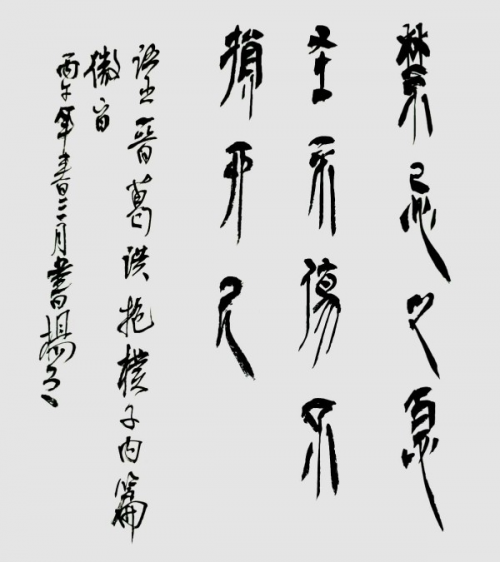 禁忌之急
在不傷不
損而已
語出晉葛洪抱樸子內篇
微旨
丙午年春月書揚